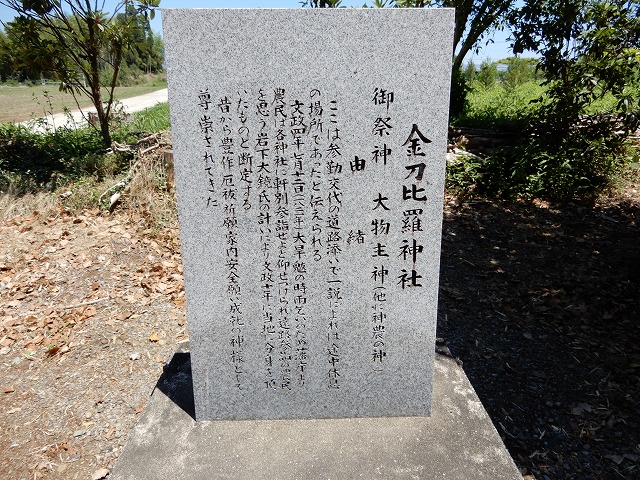 金刀比羅神社
御祭神 大物主神(他に神農の神
由緒
ここは参勤交代の道路添いで一説によれば途中休息
の場所であったと伝えられる
文政四年七月 大旱魃の時雨乞いのため藩主より
農民は各神社に軒別参詣せよと仰せつけられ近路参詣の農民
を思う岩下大鏡氏の計いにより文政十年に当地に
いたものと断定する
昔から豊作厄祓祈願家内安全願い成就の神様として
尊崇されてきた